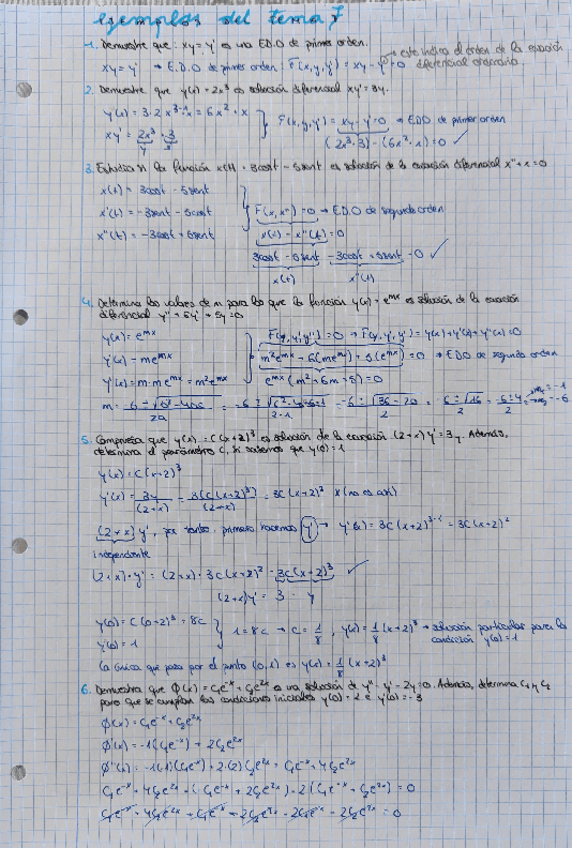 ejemplos del tema 7
1. Demuestre que: xy = y' es una E.D.O de primer orden.
xy = y' → E.D.O de primer orden: F(x,y,y') = xy - y' = 0 → este indica el orden de la ecuación
diferencial ordinaria.
2. Demuestre que y(x) = 2x³ es solución diferencial xy' = 3y.
y(x) = 3·2x³⁻¹·x = 6x²·x
F(x,y,y') = xy - y' = 0 → EDO de primer orden
xy' = 2x³·3
(2x³·3) - (6x²·x) = 0 ✓
3. Estudia si la función x(t) = 3cost - 5sent es solución de la ecuación diferencial x'' + x = 0
x(t) = 3cost - 5sent
x'(t) = -3sent - 5cost
F(x,x'') = 0 → E.D.O de segundo orden
x''(t) = -3cost + 5sent
x(t) - x''(t) = 0
3cost - 5sent - 3cost + 5sent = 0 ✓
x(t) x''(t)
4. Determina los valores de m para los que la función y(x) = eᵐˣ es solución de la ecuación
diferencial y'' + 6y' + 5y = 0
y(x) = eᵐˣ
F(y,y',y'') = 0 → F(y,y',y') = y(x) + y'(x) + y''(x) = 0
y'(x) = meᵐˣ
m²eᵐˣ - 6(meᵐˣ) + 5(eᵐˣ) = 0 → EDO de segundo orden
y''(x) = m·meᵐˣ = m²eᵐˣ
eᵐˣ(m² + 6m + 5) = 0
5. Comprueba que y(x) = C(x+2)³ es solución de la ecuación (2+x)y' = 3y. Además,
determina el parámetro C, si sabemos que y(0) = 1
y(x) = C(x+2)³
y'(x) = 3y/(2+x) = 3(C(x+2)³)/(2+x) = 3C(x+2)² x (no es así)
(2+x)y', por tanto, primero hacemos y' → y'(x) = 3C(x+2)³⁻¹ = 3C(x+2)²
independiente
(2+x)·y' = (2+x)·3C(x+2)² = 3C(x+2)³ ✓
(2+x)y' = 3 · y
y(0) = C(0+2)³ = 8C
1 = 8C → C = 1/8, y(x) = 1/8 (x+2)³ → solución particular para la
y(0) = 1
condición y(0) = 1
La única que pasa por el punto (0,1) es y(x) = 1/8 (x+2)³
6. Demuestra que Φ(x) = C₁e⁻ˣ + C₂e²ˣ es una solución de y'' - y' - 2y = 0. Además, determina C₁ y C₂
para que se cumplan las condiciones iniciales y(0) = 2 e y'(0) = -3
Φ(x) = C₁e⁻ˣ + C₂e²ˣ
Φ'(x) = -1(C₁e⁻ˣ) + 2C₂e²ˣ
Φ''(x) = -1(-1)(C₁e⁻ˣ) + 2·(2)C₂e²ˣ = C₁e⁻ˣ + 4C₂e²ˣ
C₁e⁻ˣ + 4C₂e²ˣ - (-C₁e⁻ˣ + 2C₂e²ˣ) - 2(C₁e⁻ˣ + C₂e²ˣ) = 0
C₁e⁻ˣ + 4C₂e²ˣ + C₁e⁻ˣ - 2C₂e²ˣ - 2C₁e⁻ˣ - 2C₂e²ˣ = 0